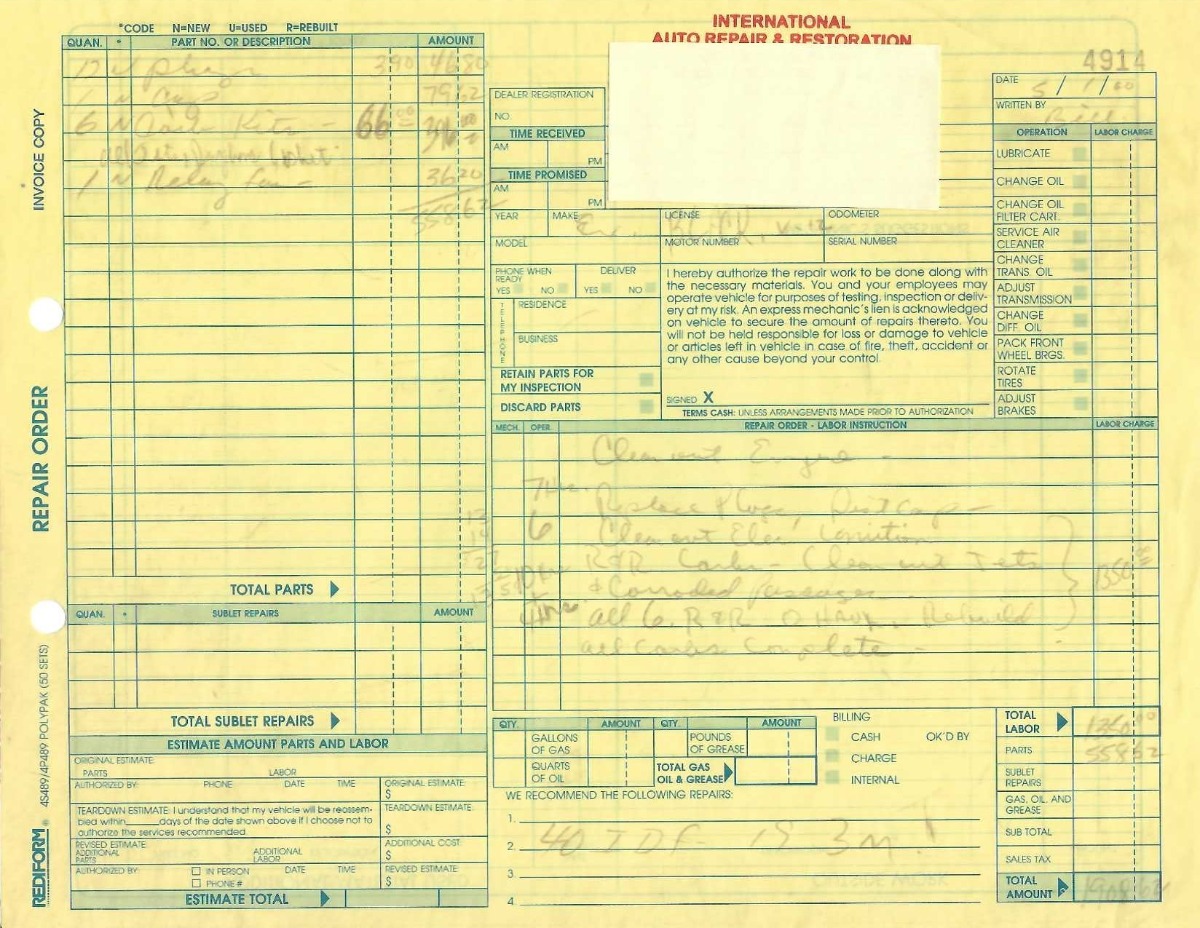 *CODE N=NEW U=USED R=REBUILT
QUAN. * PART NO. OR DESCRIPTION AMOUNT
12 N plugs 3 90 46 80
1 N Cap 79 62
6 N Carb Kits 66 00 396 00
1 N Relay 36 20
558 62
TOTAL PARTS
QUAN. * SUBLET REPAIRS AMOUNT
TOTAL SUBLET REPAIRS
ESTIMATE AMOUNT PARTS AND LABOR
ORIGINAL ESTIMATE:
PARTS LABOR
AUTHORIZED BY: PHONE DATE TIME ORIGINAL ESTIMATE:
$
TEARDOWN ESTIMATE: I understand that my vehicle will be reassem-
bled within____days of the date shown above if I choose not to
authorize the services recommended.
TEARDOWN ESTIMATE:
$
REVISED ESTIMATE:
ADDITIONAL PARTS
ADDITIONAL LABOR
ADDITIONAL COST
$
AUTHORIZED BY: IN PERSON DATE TIME REVISED ESTIMATE:
PHONE# $
ESTIMATE TOTAL
INVOICE COPY
REPAIR ORDER
4S489/4P489 POLYPAK (50 SETS)
REDIFORM ®
INTERNATIONAL
AUTO REPAIR & RESTORATION
4914
DEALER REGISTRATION
NO.
TIME RECEIVED
AM PM
TIME PROMISED
AM PM
DATE 5/1/00
WRITTEN BY Bill
YEAR MAKE LICENSE ODOMETER
V-12
MODEL MOTOR NUMBER SERIAL NUMBER
PHONE WHEN READY DELIVER
YES NO YES NO
TELEPHONE
RESIDENCE
BUSINESS
RETAIN PARTS FOR
MY INSPECTION
DISCARD PARTS
I hereby authorize the repair work to be done along with
the necessary materials. You and your employees may
operate vehicle for purposes of testing, inspection or deliv-
ery at my risk. An express mechanic's lien is acknowledged
on vehicle to secure the amount of repairs thereto. You
will not be held responsible for loss or damage to vehicle
or articles left in vehicle in case of fire, theft, accident or
any other cause beyond your control.
SIGNED X
TERMS CASH: UNLESS ARRANGEMENTS MADE PRIOR TO AUTHORIZATION
OPERATION LABOR CHARGE
LUBRICATE
CHANGE OIL
CHANGE OIL
FILTER CART.
SERVICE AIR
CLEANER
CHANGE
TRANS. OIL
ADJUST
TRANSMISSION
CHANGE
DIFF. OIL
PACK FRONT
WHEEL BRGS.
ROTATE
TIRES
ADJUST
BRAKES
MECH. OPER. REPAIR ORDER - LABOR INSTRUCTION LABOR CHARGE
Clean out Engine -
7 Hrs. Replace Plugs, Dist Cap -
6 Clean out Elec Ignition
R&R Carbs - Clean out Jets 1350 00
& Corroded Passages
4 Hrs all 6. R&R. Rebuild
all Carbs Complete -
QTY. AMOUNT QTY. AMOUNT
GALLONS
OF GAS
POUNDS
OF GREASE
QUARTS
OF OIL
TOTAL GAS
OIL & GREASE
BILLING
CASH OK'D BY
CHARGE
INTERNAL
WE RECOMMEND THE FOLLOWING REPAIRS:
1.
2. 40 IDF 18 3m!
3.
4.
TOTAL LABOR 1350 00
PARTS 558 62
SUBLET REPAIRS
GAS, OIL AND GREASE
SUB TOTAL
SALES TAX
TOTAL AMOUNT 1908 62